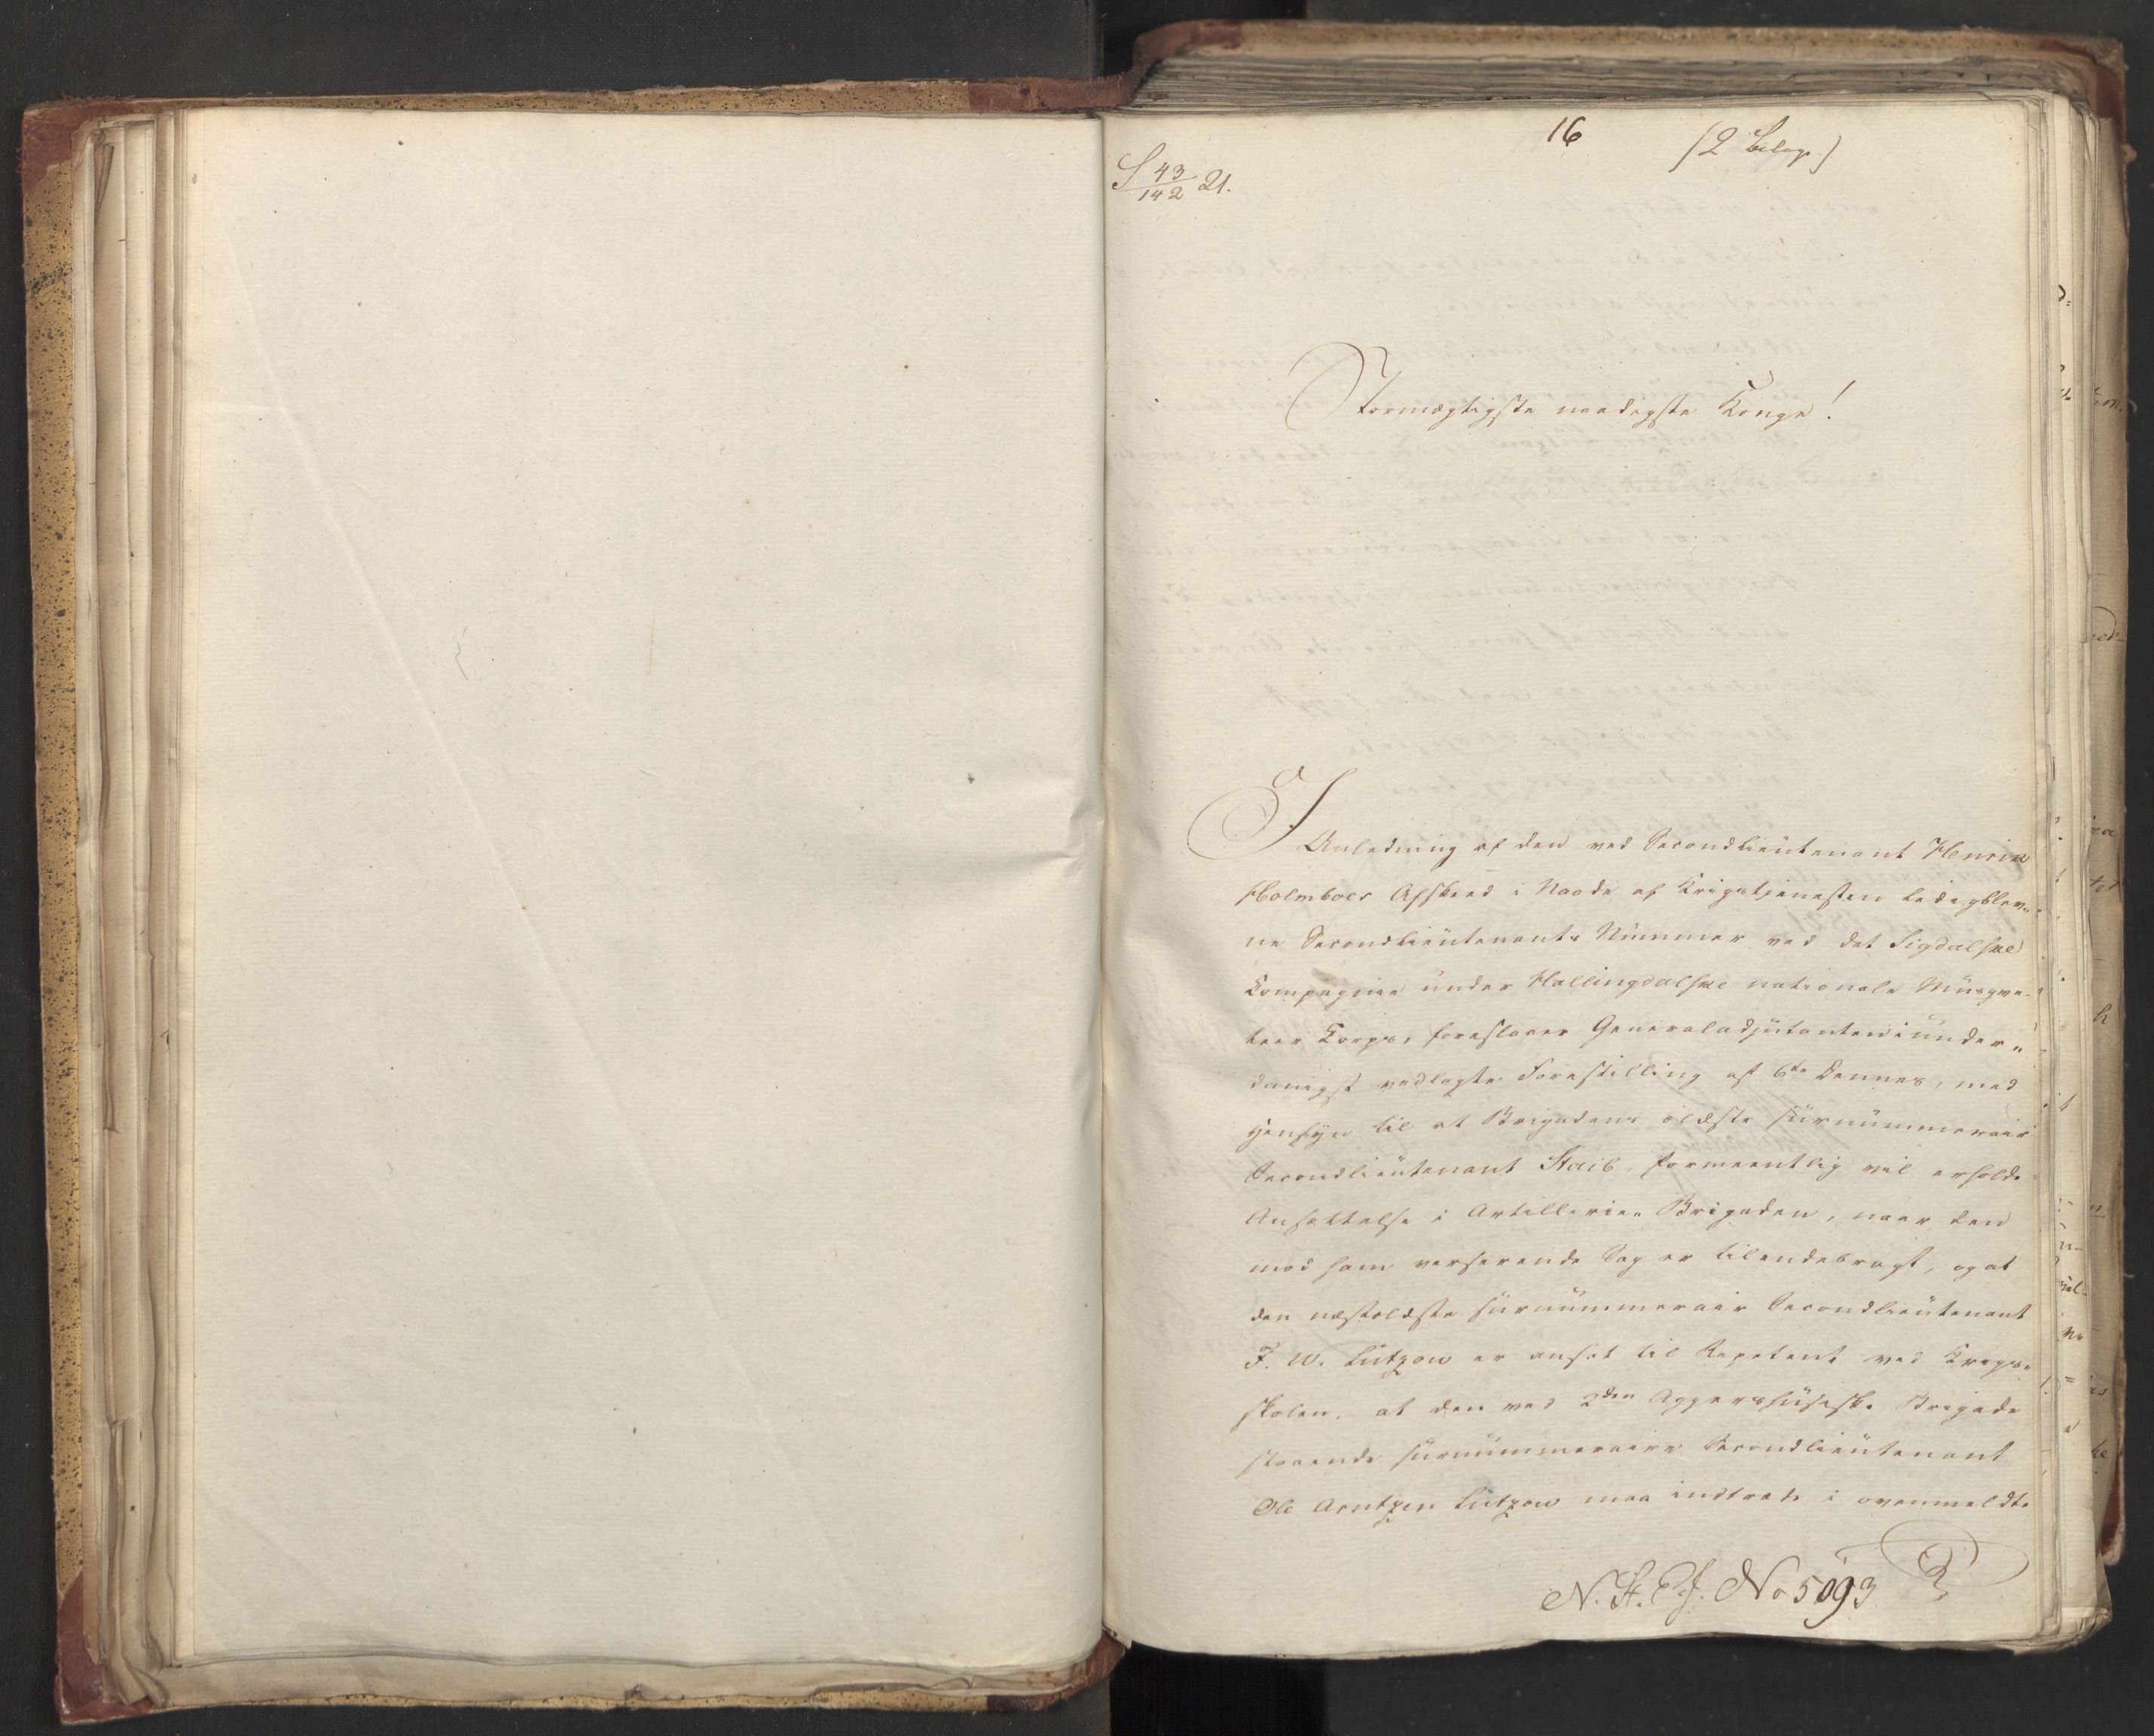 16
(2 Bilag.)
S 43/142 21.
Stormægtigste naadigste Konge!
I Anledning af den ved Secondlieutenant Henrik
Holmboes Afskeed i Naade af Krigstjenesten ledigblev„
ne Secondlieutenants Nummer ved det Sigdalske
Kompagnie under Hallingdalske nationale Musqve„
teer Korps, foreslaaer Generaladjutanten i under„
danigst vedlagte Forestilling af 6te dennes, med
Hensyn til at Brigadens ældste surnummerair
Secondlieutenant Staib, formeentlig vil erholde
Ansættelse i Artillerie-Brigaden, naar den
mod ham verserende Sag er tilendebragt, og at
den næstældste surnummerair Secondlieutenant
F. W. Lützow er ansat til Repetent ved Krigs„
skolen, at den ved 2den Aggershusiske Brigade
staaende surnummeraire Secondlieutenant
Ole Arntzen Lützow maa indtræde i ovenmeldte
N. St. E. J. No 5093